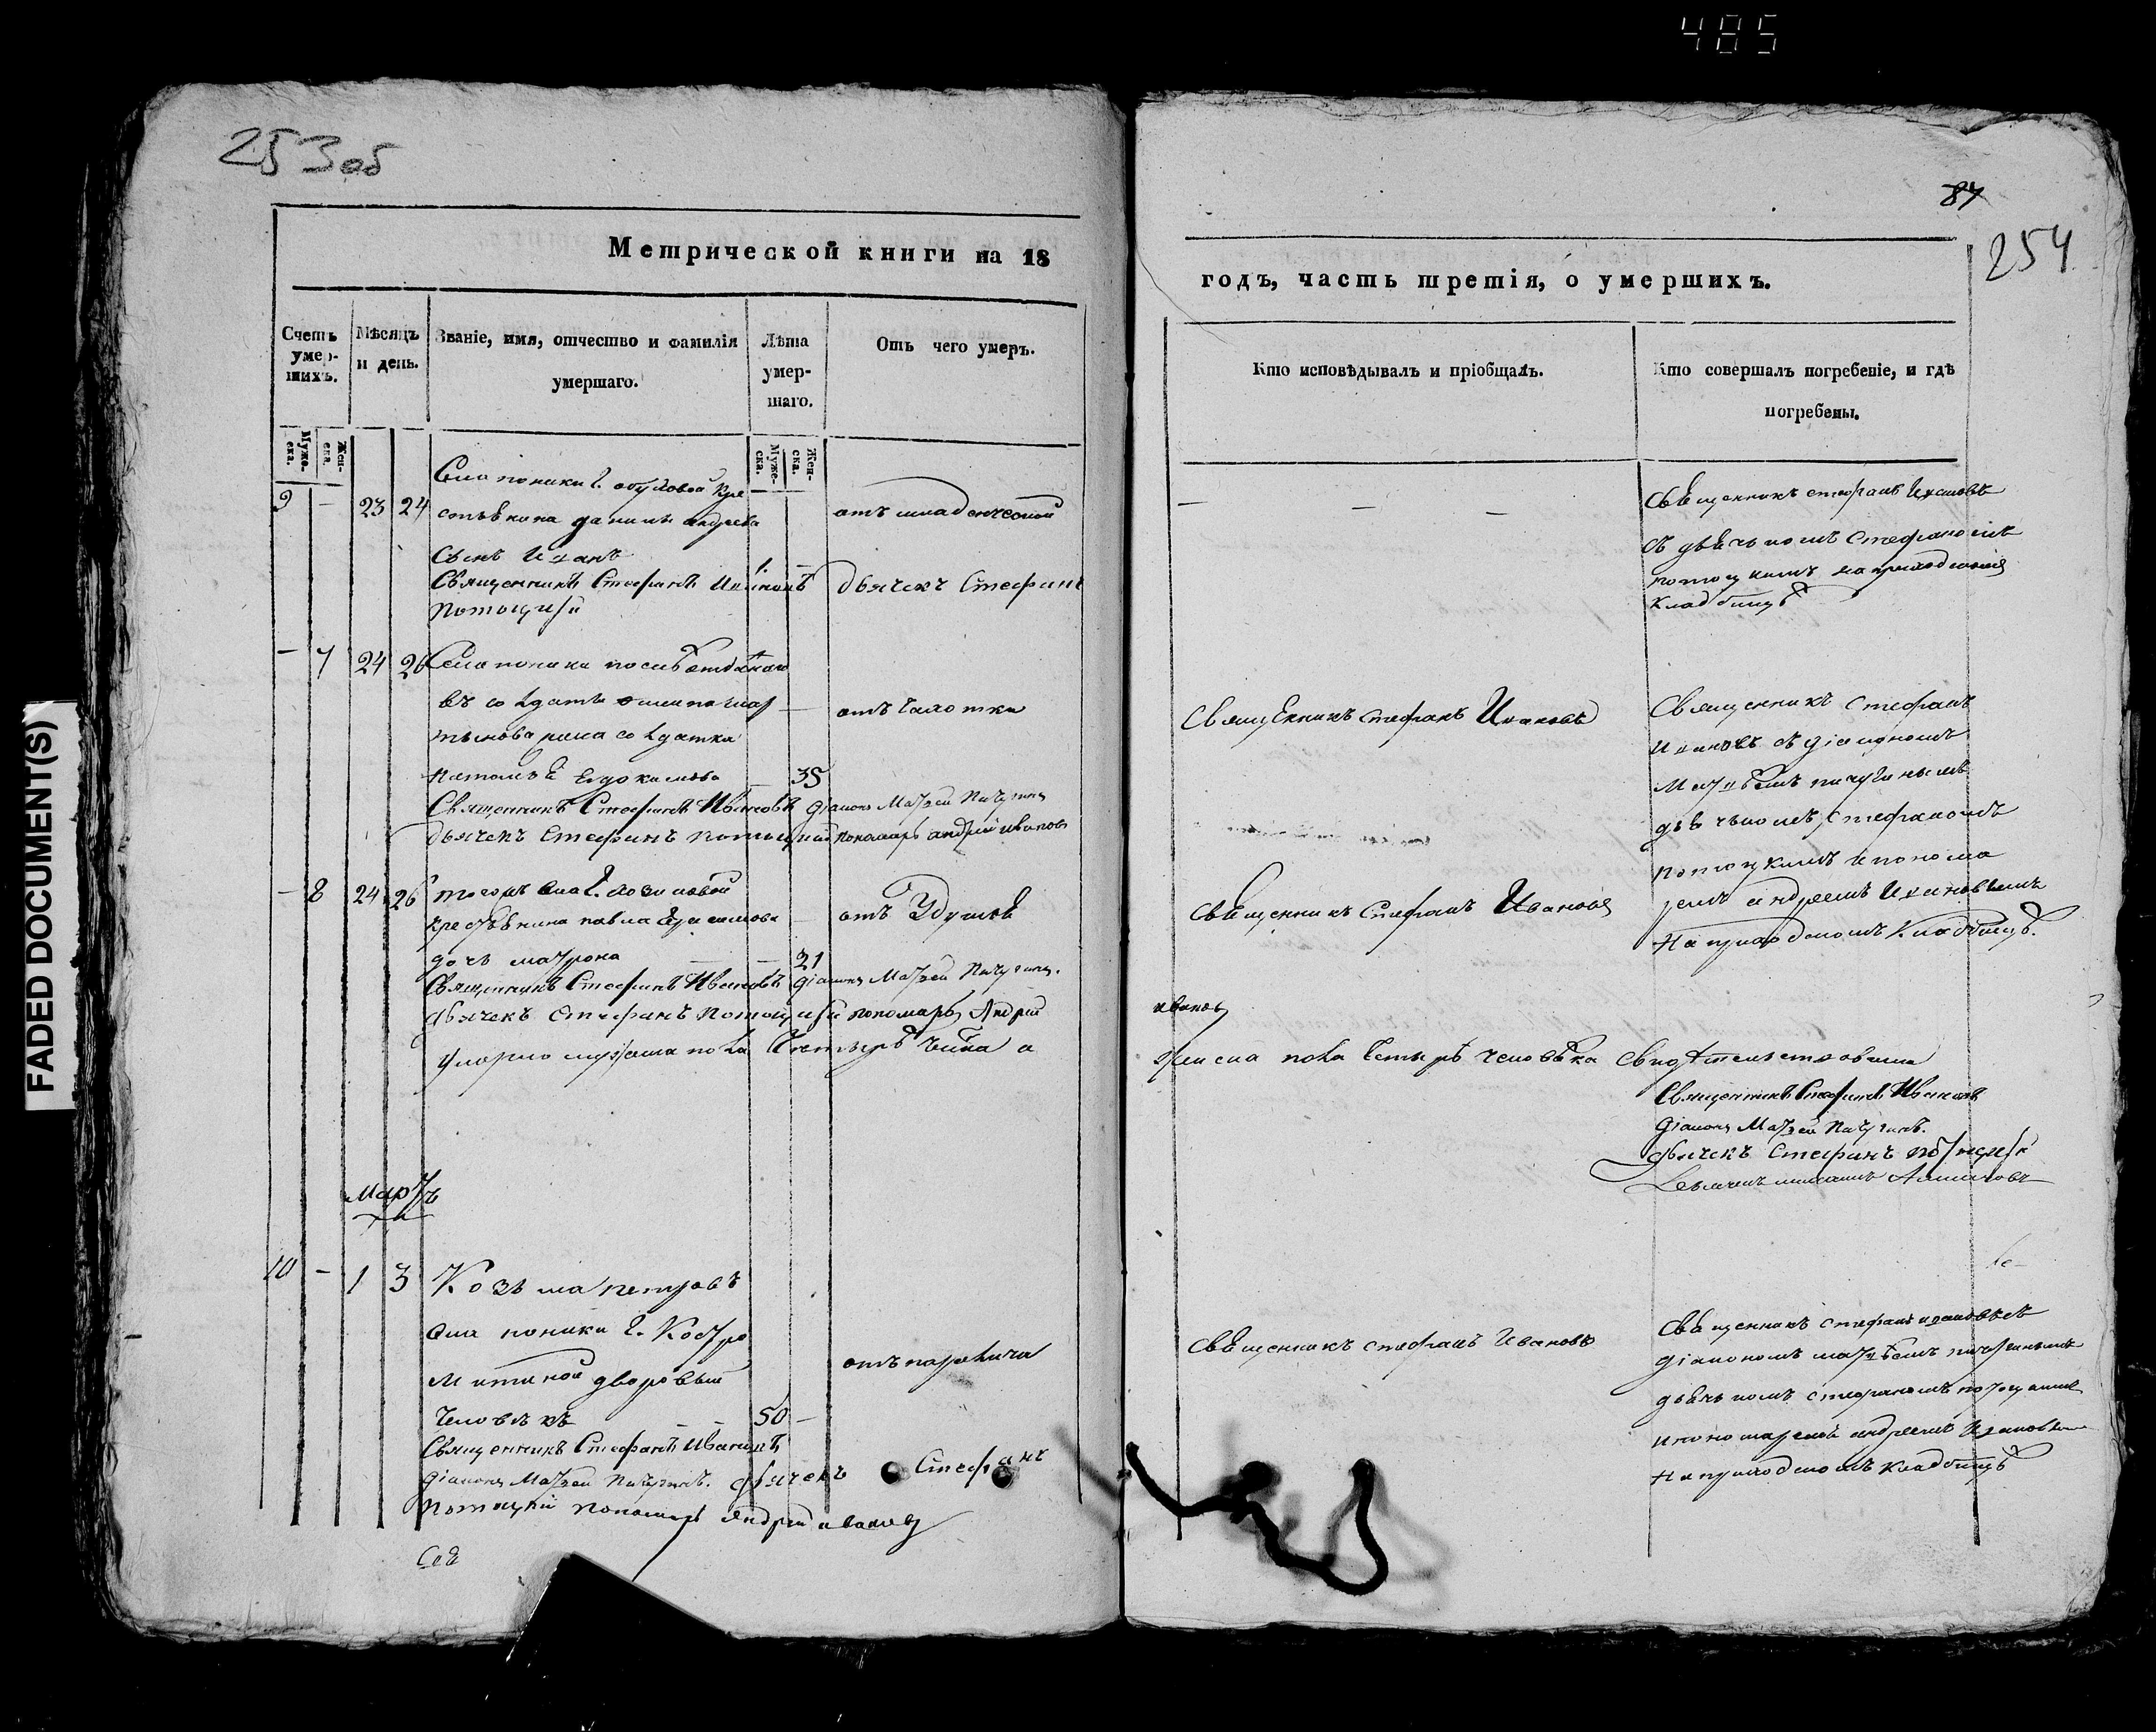 485
FADED DOCUMENT(S)
253об
Метрической книги на 18
Счетъ умер-шихъ.
Мѣсяцъ и день.
Званіе, имя, отчество и фамилія умершаго.
Лѣта умер-шаго.
Отъ чего умеръ.
Муже-ска.
Жен-ска.
Муже-ска.
Жен-ска.
9 — 23 24
Села поники Г.
Данилы Андреева
сынъ Иванъ 1. —
отъ младенческой
Священникъ Стефанъ Ивановъ Дьячекъ Стефанъ
Потоцкій
— 7 24 26
Села поники
въ солдаты
солдатка
Наталья Евдокимова — 35
отъ чахотки
Священникъ Стефанъ Ивановъ Діаконъ Матвей Пичугинъ
Дьячекъ Стефанъ Потоцкій пономарь Андрей Ивановъ
— 8 24 26
тогожъ села Г.
крестьянина павла
дочь матрона — — 21
отъ удушья
Священникъ Стефанъ Ивановъ Діаконъ Матвей Пичугинъ.
Дьячекъ Стефанъ Потоцкій пономарь Андрей
Умерло мужеска пола четыре а
Мартъ
10 — 1 3
Козьма петровъ
села поники Г. Костро
митиной дворовый
человѣкъ — — 50 —
отъ паралича
Священникъ Стефанъ Ивановъ
Діаконъ Матвей Пичугинъ. Дьячекъ Стефанъ
Потоцкій пономарь Андрей Ивановъ
84
254
годъ, часть третія, о умершихъ.
Кто исповѣдывалъ и пріобщалъ.
Кто совершалъ погребеніе, и гдѣ погребены.
— — —
Священникъ стефанъ Ивановъ
съ дьячькомъ Стефаномъ
потоцкимъ на приходскомъ
кладбищѣ
Священникъ стефанъ Ивановъ
Священникъ Стефанъ
Ивановъ съ діакономъ
Матвѣемъ пичугинымъ
дьячькомъ Стефаномъ
потоцкимъ и понома
ремъ андреемъ Ивановымъ
на приходскомъ кладбищѣ.
Священникъ Стефанъ Ивановъ
Ивановъ
женска пола четыре человѣка свидѣтельствовали
Священникъ Стефанъ Ивановъ
Діаконъ Матвей Пичугинъ.
Дьячекъ Стефанъ Потоцкій
Священникъ стефанъ Ивановъ
Священникъ стефанъ ивановъ съ
діакономъ матвѣемъ пичугинымъ
дьячькомъ стефаномъ потоцкимъ
и пономаремъ андреемъ Ивановымъ
на приходскомъ кладбищѣ